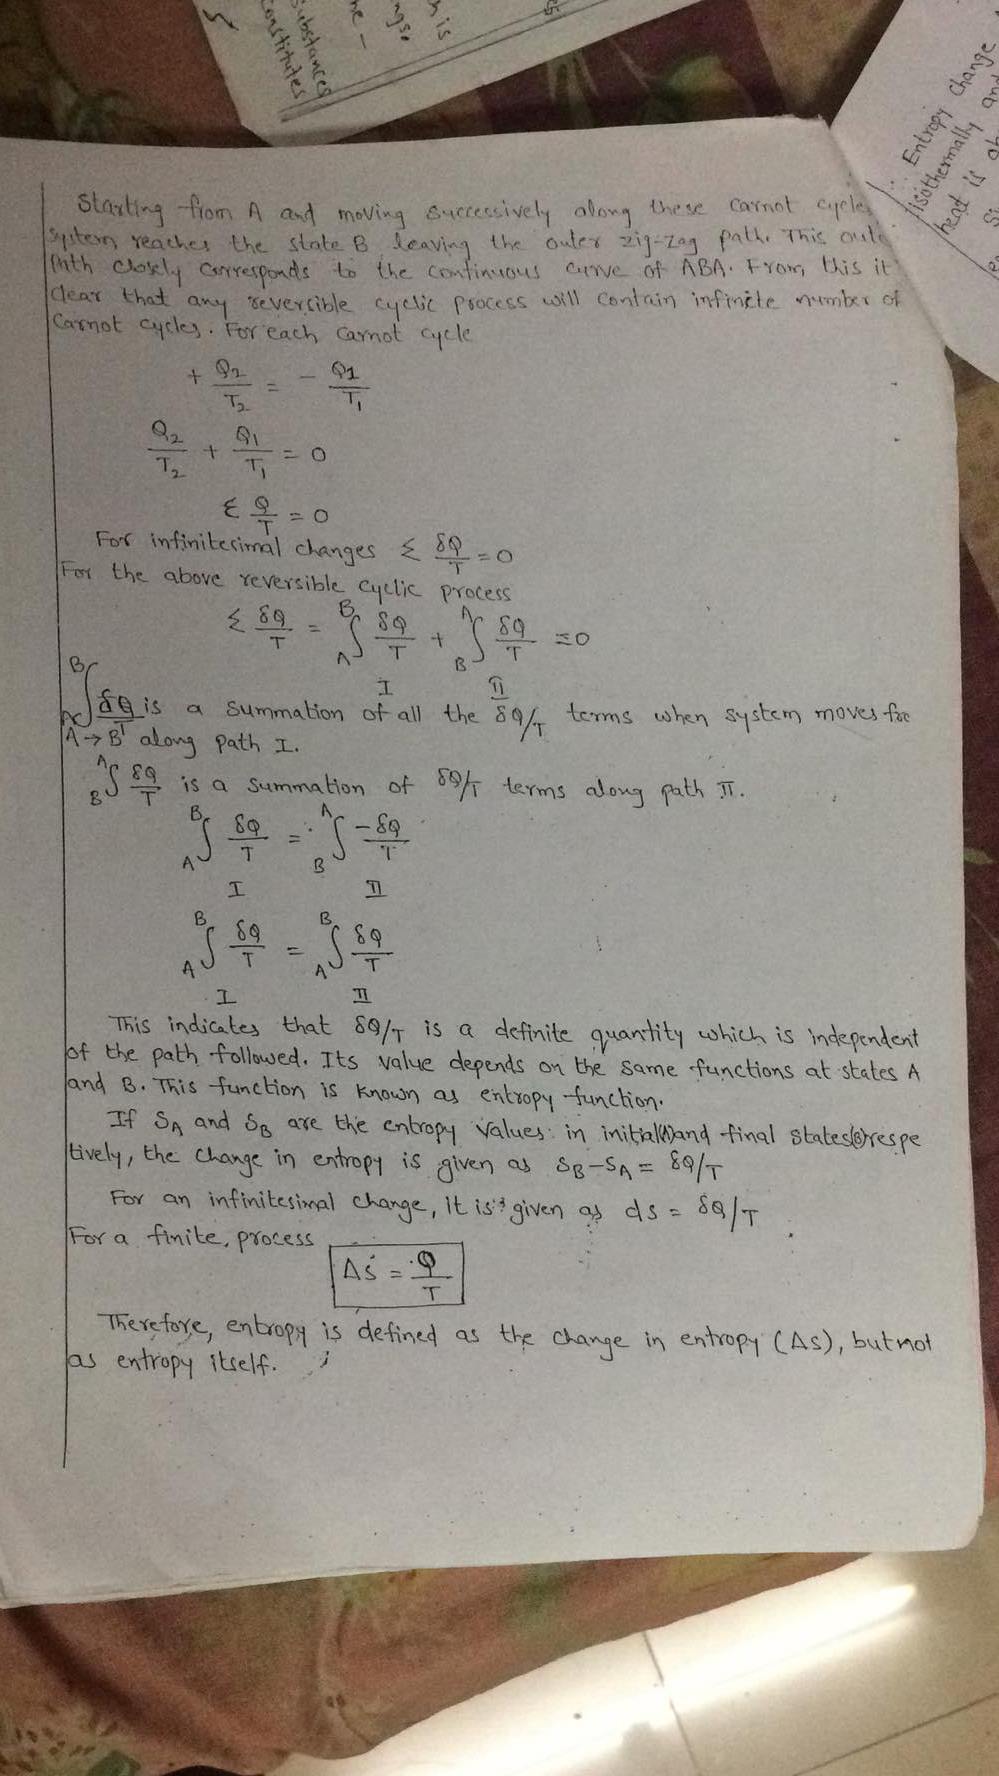 h is
ngs.
he -
Substances
constitutes
∴ Entropy change
isothermally and
heat is
Starting from A and moving successively along these carnot cycles
system reaches the state B leaving the outer zig-zag path. This oute
Path closely corresponds to the continuous curve of ABA. From, this it
clear that any reversible cyclic process will contain infinite number of
Carnot cycles. For each carnot cycle
+ Q2/T2 = - Q1/T1
Q2/T2 + Q1/T1 = 0
Σ Q/T = 0
For infinitesimal changes Σ δQ/T = 0
For the above reversible cyclic process
Σ δQ/T = A∫B δQ/T + B∫A δQ/T = 0
I II
A∫B δQ/T is a summation of all the δQ/T terms when system moves fro
A → B along path I.
B∫A δQ/T is a summation of δQ/T terms along path II.
A∫B δQ/T = B∫A -δQ/T
I II
A∫B δQ/T = A∫B δQ/T
I II
This indicates that δQ/T is a definite quantity which is independent
of the path followed. Its value depends on the same functions at states A
and B. This function is known as entropy function.
If SA and SB are the entropy values in initial(A) and final states(B) respe
tively, the change in entropy is given as SB-SA = δQ/T
For an infinitesimal change, it is given as ds = δQ/T
For a finite, process
ΔS = Q/T
Therefore, entropy is defined as the change in entropy (Δs), but not
as entropy itself.